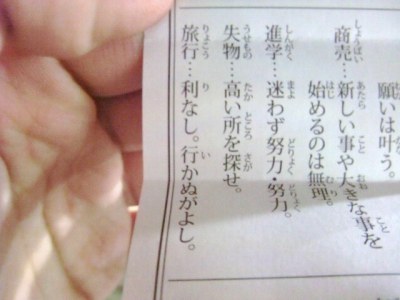 願いは叶う。
商売…新しい事や大きな事を
始めるのは無理。
進学…迷わず努力・努力。
失物…高い所を探せ。
旅行…利なし。行かぬがよし。